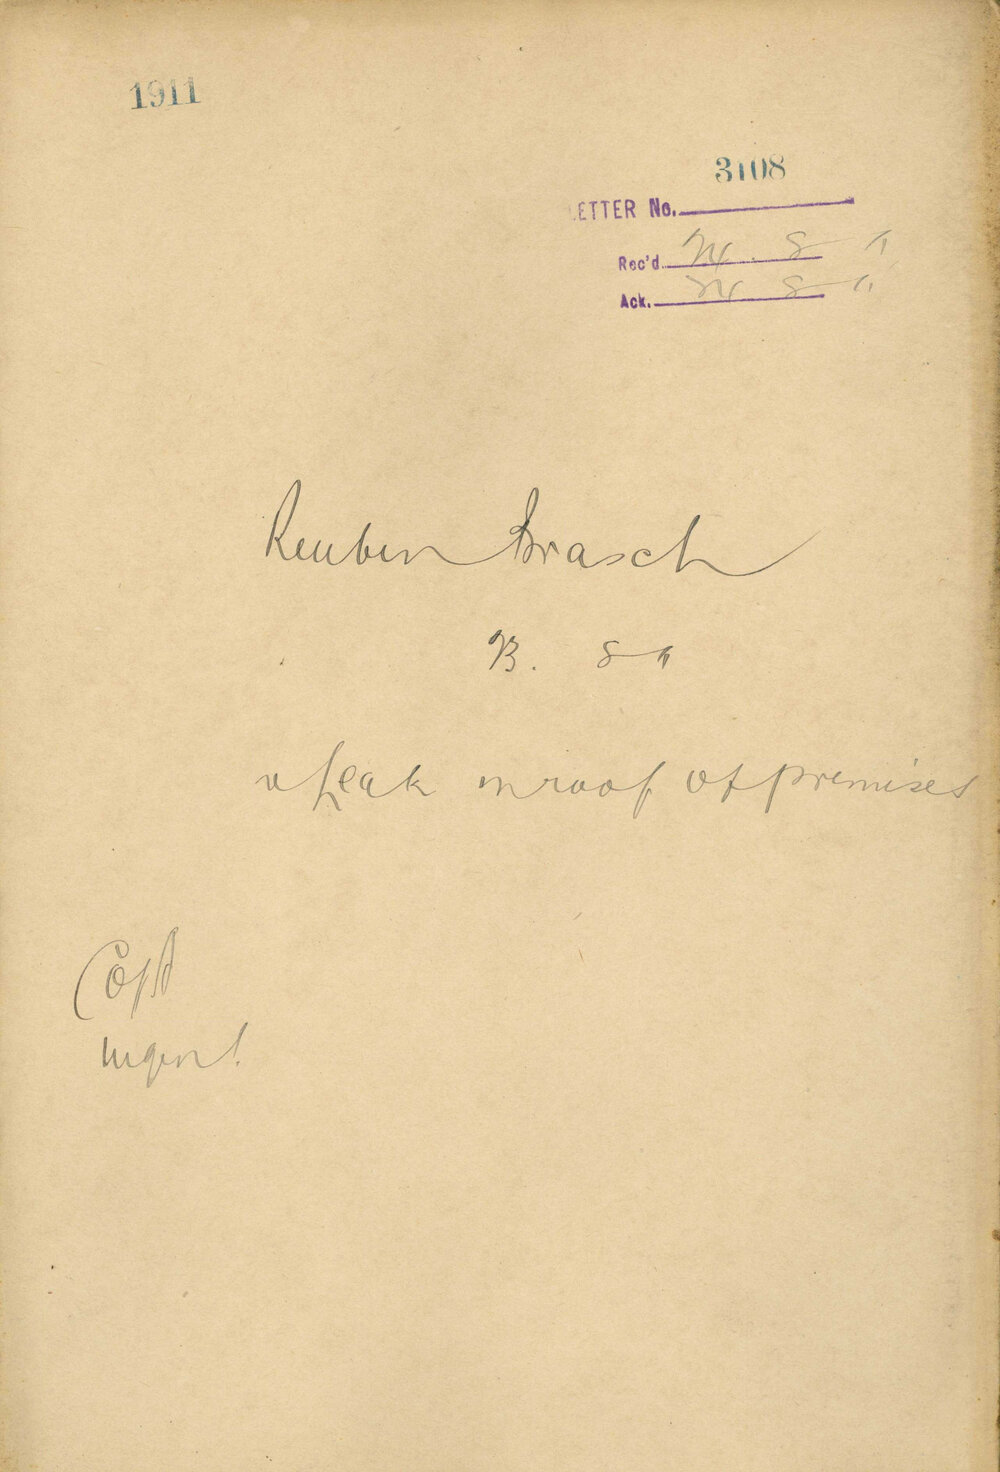 1911
3108
LETTER No.
Rec'd 24. 8 11
Ack. 24 8 11
Reuben Brasch
23. 8 11
r Leak in roof of premises
Urgent.